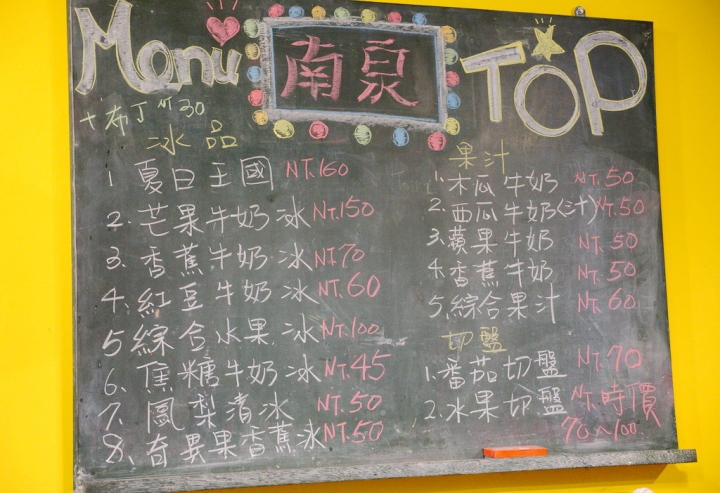 Menu 南泉 TOP
+布丁 NT 30
冰品
1 夏日王國 NT.160
2. 芒果牛奶冰 NT.150
3. 香蕉牛奶冰 NT70
4. 紅豆牛奶冰 NT.60
5 綜合水果冰 NT.100
6. 焦糖牛奶冰 NT.45
7. 鳳梨清冰 NT.50
8. 奇異果香蕉冰 NT.50
果汁
1. 木瓜牛奶 NT.50
2. 西瓜牛奶(汁) NT.50
3. 蘋果牛奶 NT.50
4. 香蕉牛奶 NT.50
5. 綜合果汁 NT.60
切盤
1. 番茄切盤 NT.70
2. 水果切盤 NT.時價
70~100